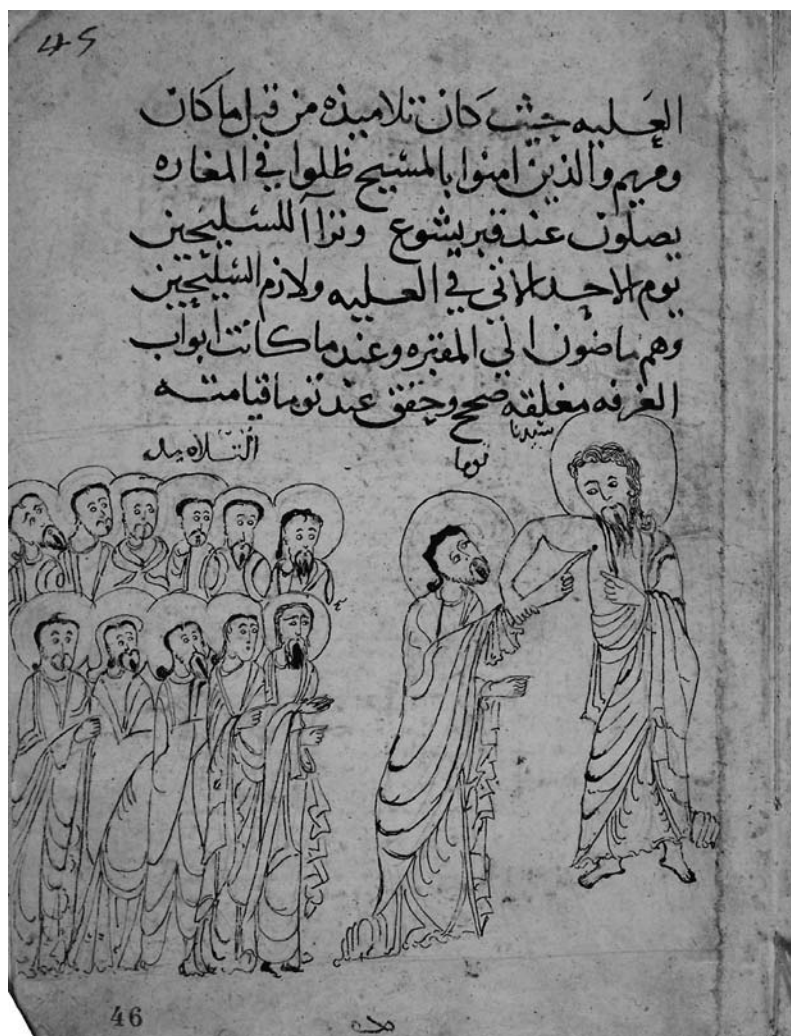 45
العليه حيث كان تلاميذه من قبل ما كان
ومريم والذين امنوا بالمسيح ظلوا في المغاره
يصلون عند قبر يشوع وتراآ للسليحين
يوم الاحد الاتي في العليه ولازم السليحين
وهم ماضون الي المقبره وعند ما كانت ابواب
الغرفه مغلقه صحح وحقق عند توما قيامته
سيدنا
توما
التلاميد
46